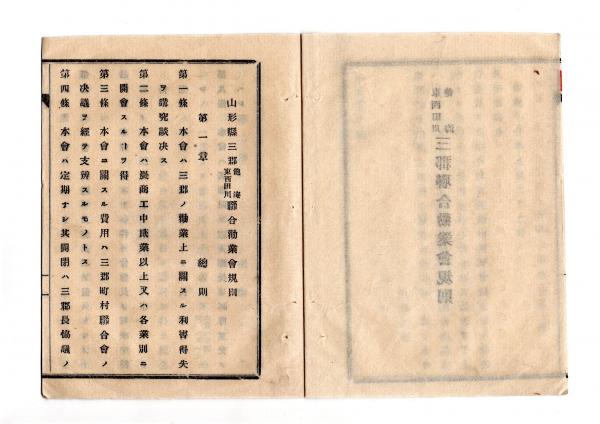 山形縣三郡飽海東西田川聯合勸業會規則
第一章 總則
第一條 本會ハ三郡ノ勸業上ニ關スル利害得失
ヲ講究談决ス
第二條 本會ハ農商工中職業以上又ハ各業別ニ
開會スルヿヲ得
第三條 本會ニ關スル費用ハ三郡町村聯合會ノ
决議ヲ經テ支辨スルモノトス
第四條 本會ハ定期ナシ其開閉ハ三郡長協議ノ